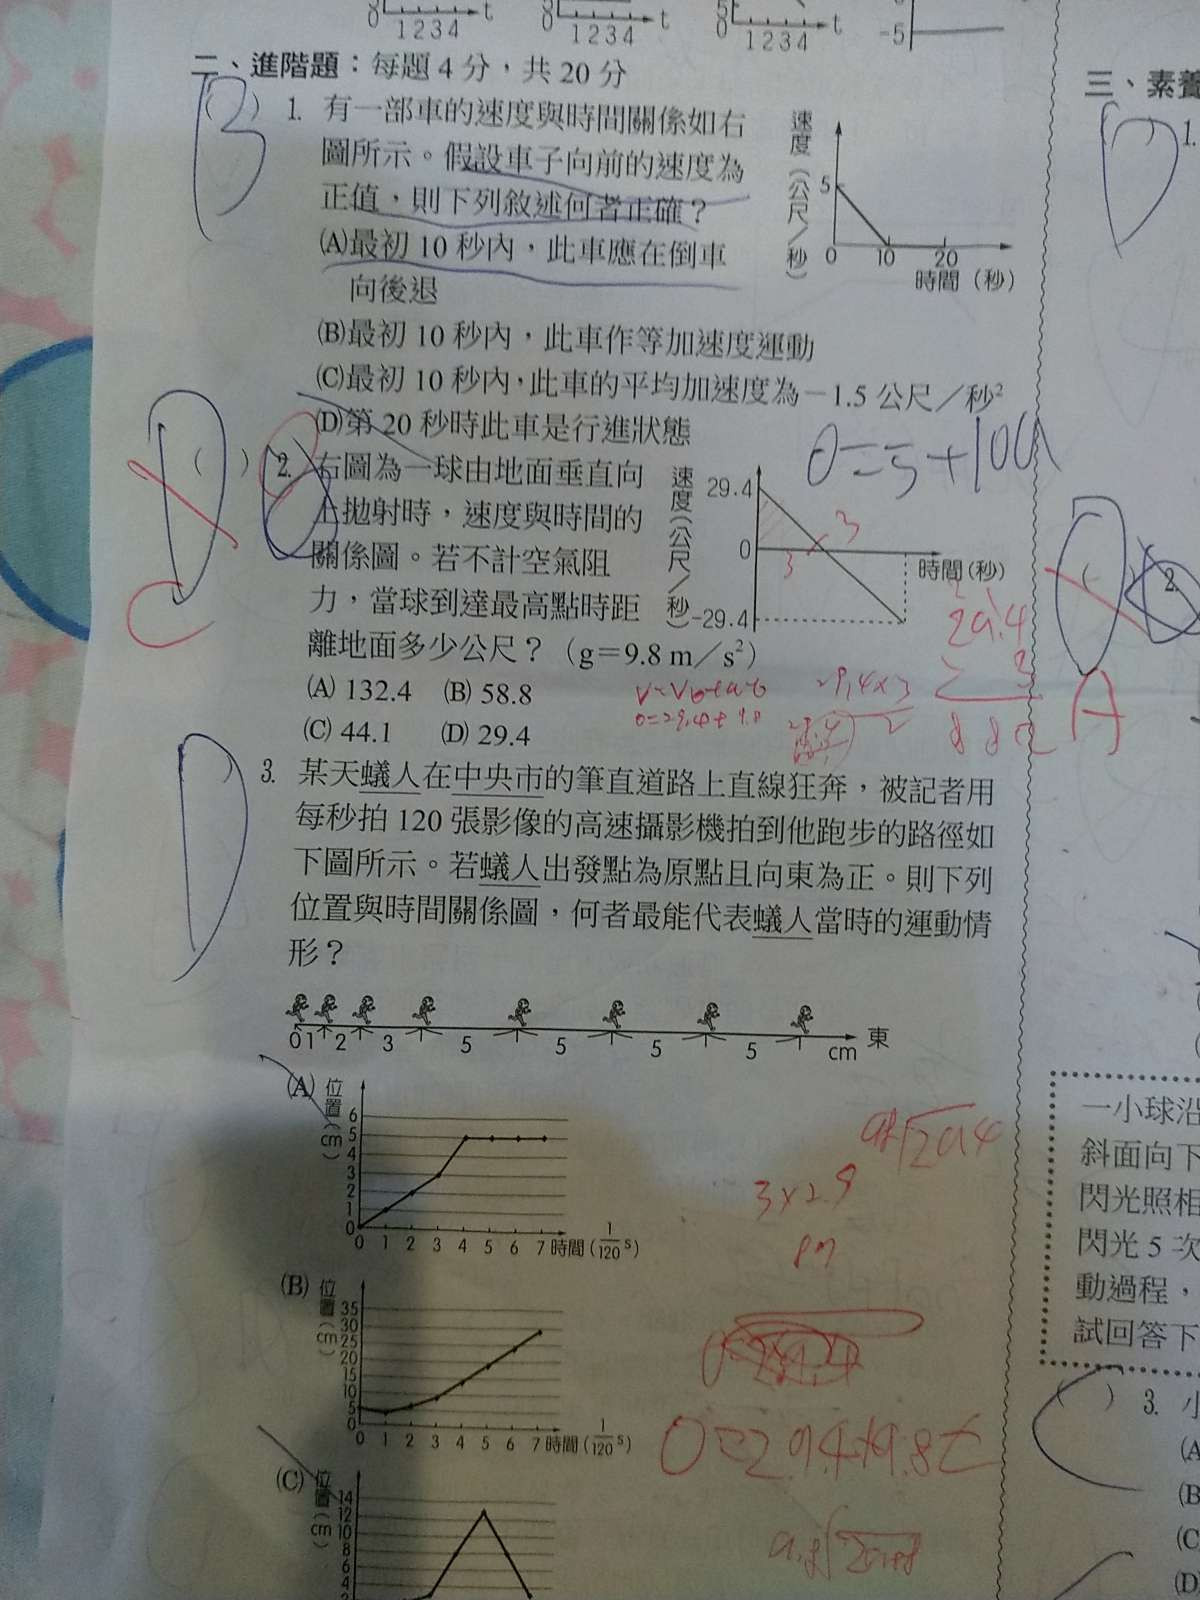 0 1 2 3 4 t
0 1 2 3 4 t
5
0 1 2 3 4 t
-5
二、進階題：每題 4 分，共 20 分
B
( ) 1. 有一部車的速度與時間關係如右
圖所示。假設車子向前的速度為
正值，則下列敘述何者正確？
(A)最初 10 秒內，此車應在倒車
向後退
(B)最初 10 秒內，此車作等加速度運動
(C)最初 10 秒內，此車的平均加速度為－1.5 公尺／秒²
(D)第 20 秒時此車是行進狀態
速度（公尺／秒）
5
0 10 20
時間（秒）
0=5+10a
D
C
( ) 2. 右圖為一球由地面垂直向
上拋射時，速度與時間的
關係圖。若不計空氣阻
力，當球到達最高點時距
離地面多少公尺？（g＝9.8 m／s²）
(A) 132.4 (B) 58.8
(C) 44.1 (D) 29.4
速度（公尺／秒）
29.4
0
-29.4
時間（秒）
3
3
29.4
3
882
29.4×3
2
D
( ) 3. 某天蟻人在中央市的筆直道路上直線狂奔，被記者用
每秒拍 120 張影像的高速攝影機拍到他跑步的路徑如
下圖所示。若蟻人出發點為原點且向東為正。則下列
位置與時間關係圖，何者最能代表蟻人當時的運動情
形？
0 1 2 3 5 5 5 5 cm 東
(A) 位置（cm）
6
5
4
3
2
1
0
0 1 2 3 4 5 6 7 時間（1/120 s）
3×29
(B) 位置（cm）
35
30
25
20
15
10
5
0
0 1 2 3 4 5 6 7 時間（1/120 s）
(C) 位置（cm）
14
12
10
8
6
4
2
三、素養
( ) 1.
( ) 2.
A
一小球沿
斜面向下
閃光照相
閃光 5 次
動過程，
試回答下
( ) 3. 小
(A
(B
(C
(D